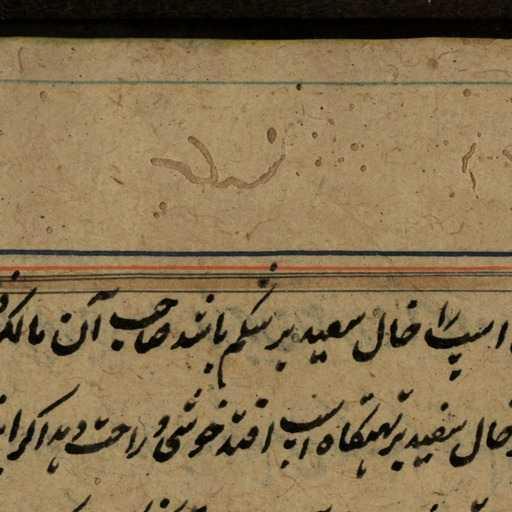 اسپ را خال سعید بر شکم باشد صاحب آن مالک
خال سفید بر تهیگاه اسپ افتد خوشی و راحت دهد اکر